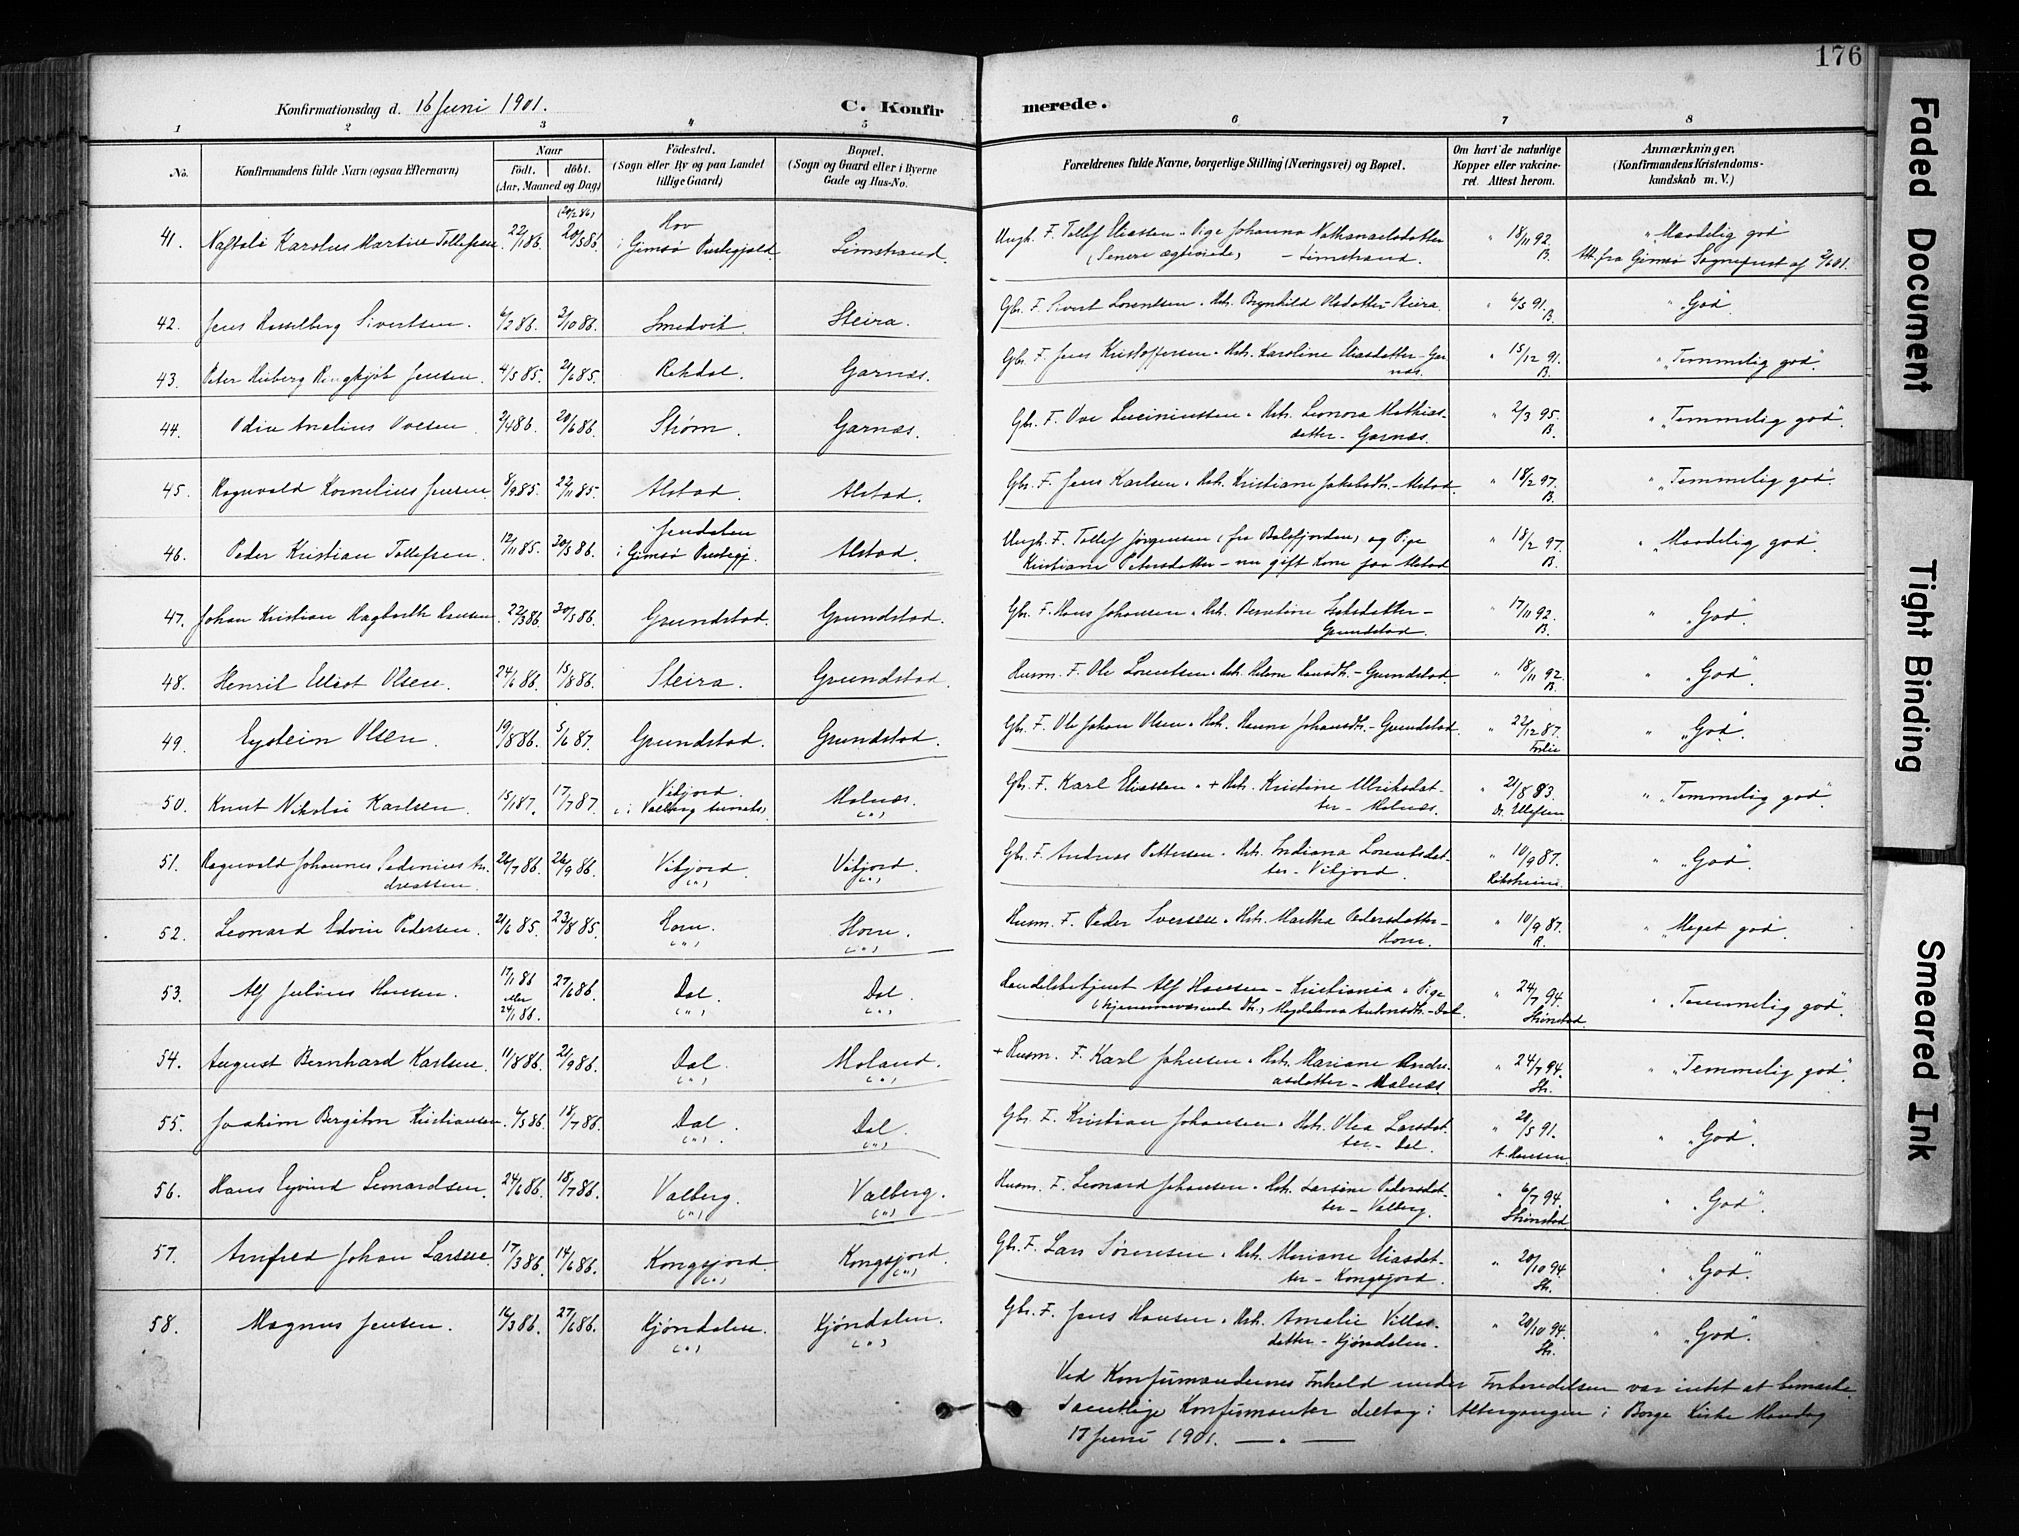 176
Konfirmationsdag d. 16 Juni 1901.
C. Konfirmerede.
1 2 3 4 5 6 7 8
No.
Konfirmandens fulde Navn (ogsaa Efternavn)
Naar
Födt. döbt.
(Aar, Maaned og Dag)
Födested.
(Sogn eller By og paa Landet
tillige Gaard)
Bopæl.
(Sogn og Gaard eller i Byerne
Gade og Hus-No.
Forældrenes fulde Navne, borgerlige Stilling (Næringsvei) og Bopæl.
Om havt de naturlige
Kopper eller vakcine-
ret. Attest herom.
Anmærkninger.
(Konfirmandens Kristendoms-
kundskab m. V.)
41. Naftali Karolus Martin Tollefsen 22/1 86. (20/2 86) 20/5 86. Hov i Gimsø Prestegjeld Limstrand. Ungk. F. Tollef Eliassen. Pige Johanna Nathanaelsdatter (Senere ægteviede) - Limstrand. " 18/11 92. B. " "Maadelig god" Att. fra Gimsø Sogneprest af 2/6 01.
42. Jens Hesselberg Sivertsen. 6/2 86. 3/10 86. Smedvik. Steira. Gbr. F. Sivert Lorentsen. Hstr. Brynhild Olsdatter - Steira " 6/5 91. B. " "God"
43. Peter Ringkjøb Jensen. 4/5 85. 21/6 85. Rekdal. Garnæs. Gbr. F. Jens Kristoffersen. Hstr. Karoline Eliasdatter - Garnæs. " 15/12 91. B. " "Temmelig god".
44. Odin Anelius Ovesen. 2/4 86. 20/6 86. Strøm. Garnæs. Gbr. F. Ove Hstr. Leonora Mathiasdatter - Garnæs. " 2/3 95. B. " "Temmelig god".
45. Ragnvald Kornelius Jensen 8/9 85. 22/11 85. Alstad. Alstad. Gbr. F. Jens Karlsen. Hstr. Kristiane Jakobsdtr. - Alstad. " 18/2 97. B. " "Temmelig god".
46. Peder Kristian Tollefsen. 12/11 85. 30/5 86. Jendalen i Gimsø Prestegj. Alstad. Ungk. F. Tollef Jörgensen (fra Balsfjorden) og Pige Kristiane Petersdatter - nu gift Kone paa Alstad " 18/2 97. B. " "Maadelig god".
47. Johan Kristian Hagbarth Hansen 22/3 86. 30/5 86. Grundstad. Grundstad. Gbr. F. Hans Johansen. Hstr. Berntine Isaksdatter - Grundstad. " 17/11 92. B. " "God".
48. Henrik Elliot Olsen. 24/6 86. 15/8 86. Steira. Grundstad. Husm. F. Ole Lorentsen. Hstr. Helene Hansdtr. - Grundstad. " 18/11 92. B. " "God".
49. Eystein Olsen. 19/8 86. 5/6 87. Grundstad. Grundstad. Gbr. F. Ole Johan Olsen. Hstr. Hanna Johansdtr. - Grundstad. " 22/12 87. " "God".
50. Knut Nikolai Karlsen. 15/1 87. 17/7 87. Vikjord. (i Valberg Annex) Molnæs. (") Gbr. F. Karl Eliassen. + Hstr. Kristine Ulriksdatter - Molnæs. " 21/8 93. Dr. Ellefsen " "Temmelig god".
51. Ragnvald Johannes Andreassen. 26/7 86. 26/9 86. Vikjord. (") Vikjord. (") Gbr. F. Andreas Pettersen. Hstr. Indiana Lorentsdatter - Vikjord. " 10/9 87. " "God".
52. Leonard Edvin Pedersen. 21/6 85. 23/8 85. Horn. (") Horn. (") Husm. F. Peder Iversen. Hstr. Martha Pedersdatter - Horn. " 10/9 87. R. " "Meget god".
53. Alf Julius Hansen. 17/1 86 eller 24/1 86. 27/6 86. Dal. (") Dal. (") Handelsbetjent Alf Hansen - Kristiania. Pige (hjemmeværende Dtr.) Magdalena Antonsdtr. - Dal. " 24/7 94. Strömstad " "Temmelig god".
54. August Bernhard Karlsen. 11/8 86. 21/9 86. Dal. (") Moland. (") + Husm. F. Karl Johnsen. Hstr. Mariane Andreasdatter - Molnæs. " 24/7 94. Str. " "Temmelig god".
55. Joakim Bergiton Kristiansen. 4/5 86. 18/7 86. Dal. (") Dal. (") Gbr. F. Kristian Johansen. Hstr. Olea Larsdatter - Dal. " 20/5 91. A. Hansen. " "God".
56. Hans Eyvind Leonardsen. 24/6 86. 18/7 86. Valberg. (") Valberg. (") Husm. F. Leonard Johansen. Hstr. Larsine Pedersdatter - Valberg. " 6/7 94. Strömstad. " "God".
57. Arnfred Johan Larsen 17/3 86. 14/6 86. Kongsjord. (") Kongsjord. (") Gbr. F. Lars Sørensen. Hstr. Mariane Eliasdatter - Kongsjord. " 20/10 94. Str. " "God".
58. Magnus Jensen. 16/3 86. 27/6 86. Kjøndalen. (") Kjøndalen. (") Gbr. F. Jens Hansen. Hstr. Amalie Villasdatter - Kjøndalen. " 20/10 94. Str. " "God".
Ved Konfirmandernes Forhold under Forberedelsen var intet at bemærke.
Samtlige Konfirmanter deltog i Altergangen i Borge Kirke Mandag
17 Juni 1901.
Faded Document
Tight Binding
Smeared Ink